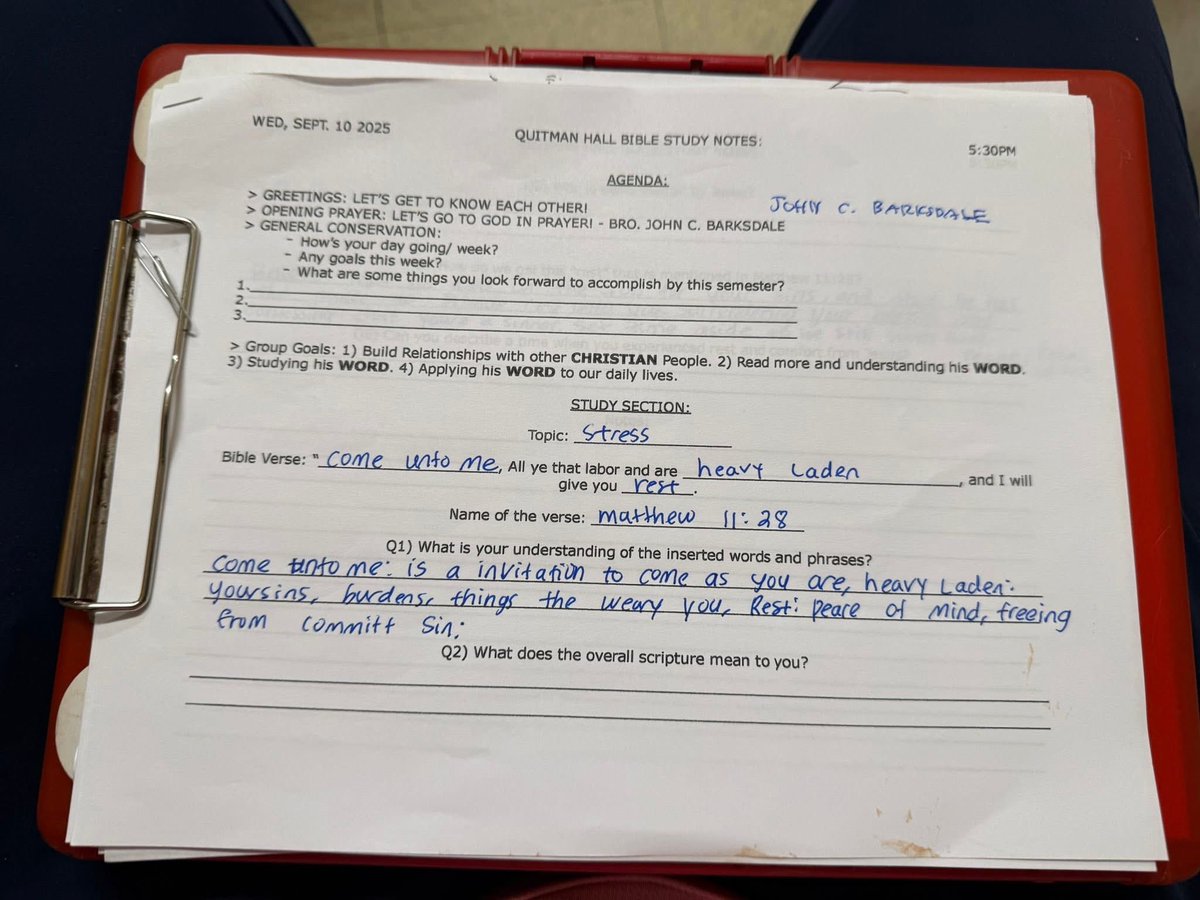 WED, SEPT. 10 2025
QUITMAN HALL BIBLE STUDY NOTES:
5:30PM
AGENDA:
> GREETINGS: LET'S GET TO KNOW EACH OTHER!
JOHN C. BARKSDALE
> OPENING PRAYER: LET'S GO TO GOD IN PRAYER! - BRO. JOHN C. BARKSDALE
> GENERAL CONSERVATION:
- How's your day going/ week?
- Any goals this week?
- What are some things you look forward to accomplish by this semester?
1.
2.
3.
> Group Goals: 1) Build Relationships with other CHRISTIAN People. 2) Read more and understanding his WORD.
3) Studying his WORD. 4) Applying his WORD to our daily lives.
STUDY SECTION:
Topic: Stress
Bible Verse: " come unto me, All ye that labor and are heavy Laden, and I will
give you rest.
Name of the verse: matthew 11:28
Q1) What is your understanding of the inserted words and phrases?
come unto me: is a invitation to come as you are, heavy Laden:
Yoursins, burdens, things the weary you, Rest: peace of mind, freeing
from committ Sin;
Q2) What does the overall scripture mean to you?